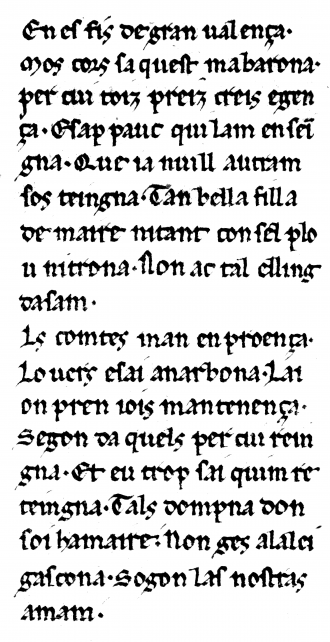 En es fis de gran valença·
Mos cors s aquest ma barona·
per cui toiz preiz creis e gen
ça· E sap pauc qui lam enseī
gna· Que ia nuill autr am
sos teingna· Tan bella filla
de maire ni tant con sel plo
u ni trona· Non ac tal el ling
da sam·
Ls comtes man en proença·
Lo vers e sai a narbona· Lai
on pren iois mantenença·
Segon da quels per cui rein
gna· Et eu trop sai quim re
teingna· Tals dompna don
soi hamaire: Non ges a lalci
gascona· Sogon las nostras
amam·